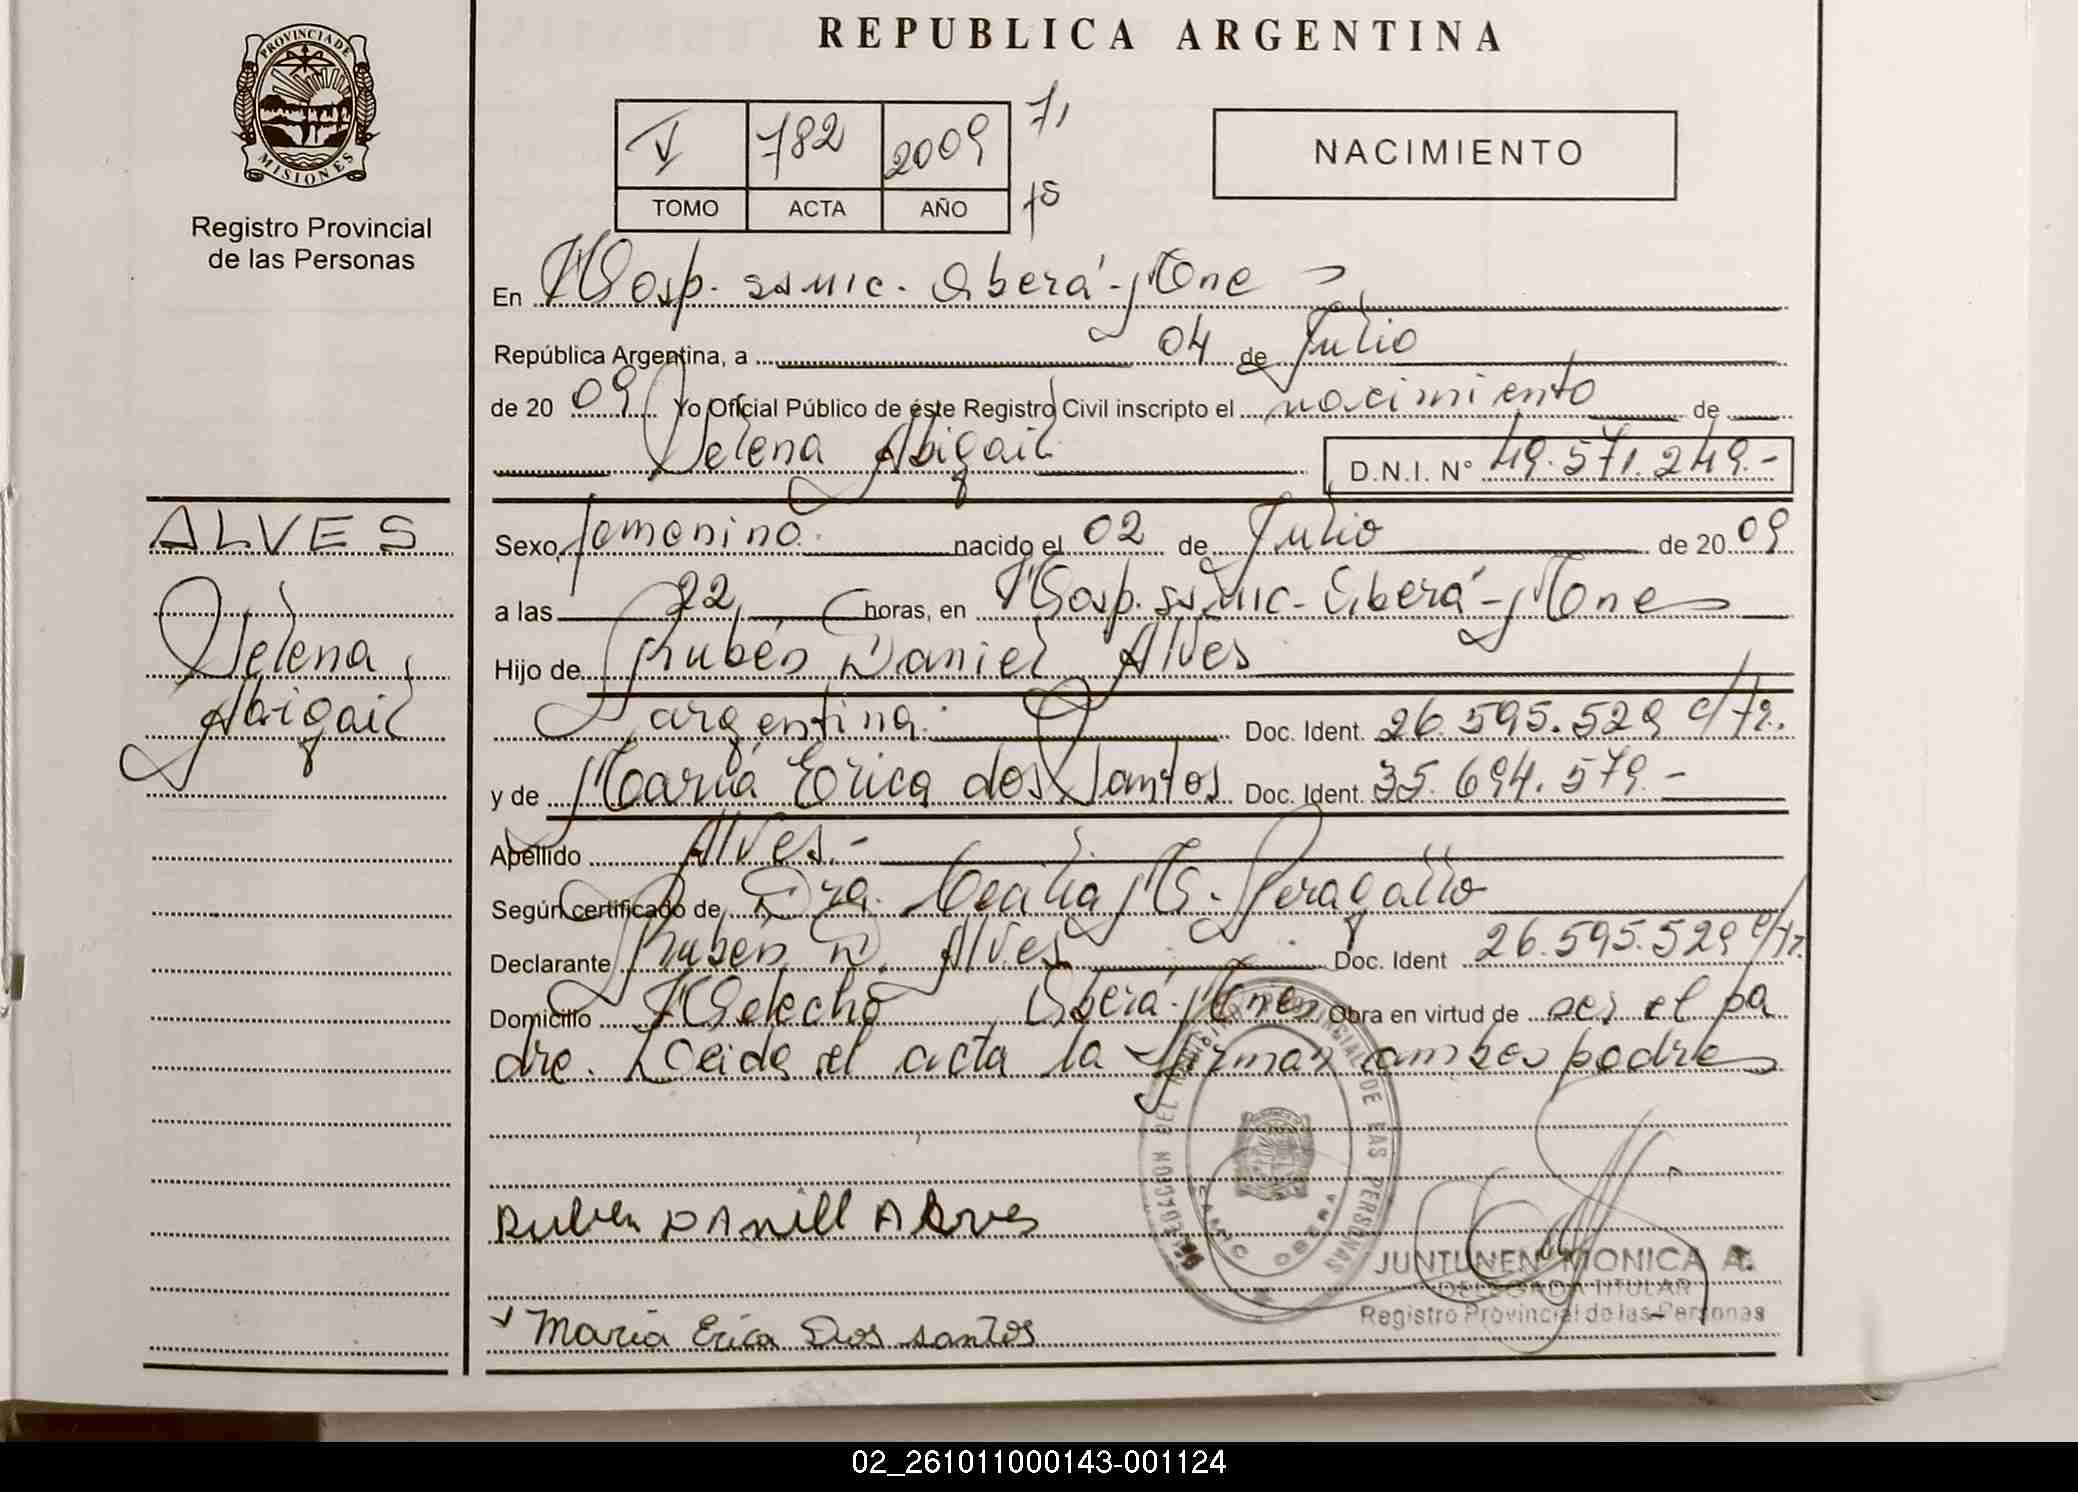 REPUBLICA ARGENTINA
PROVINCIA DE
MISIONES
Registro Provincial
de las Personas
V 782 2009 71
TOMO ACTA AÑO 75
NACIMIENTO
En Hosp. ssmic. Oberá-Mnes
República Argentina, a 04 de Julio
de 20 09 Yo Oficial Público de éste Registro Civil inscripto el nacimiento de
Selena Abigail D.N.I. N° 49.571.249.-
ALVES
Selena
Abigail
Sexo, femenino. nacido el 02 de Julio de 20 09
a las 22, horas, en Hosp. ssmic- Oberá-Mnes
Hijo de Rubén Daniel Alves
argentina. Doc. Ident. 26.595.529 c/tr.
y de María Erica dos Santos Doc. Ident. 35.694.579.-
Apellido Alves.-
Según certificado de Dra. Cecilia M. Peragallo
Declarante Rubén D. Alves Doc. Ident 26.595.529 c/tr.
Domicilio Helecho Oberá-Mnes Obra en virtud de ser el pa
dre. Leida el acta la firman ambos padres
Ruben DAniEl Alves
Maria Erica Dos santos
JUNTUNEN MONICA A.
DELEGADA TITULAR
Registro Provincial de las Personas
02_261011000143-001124